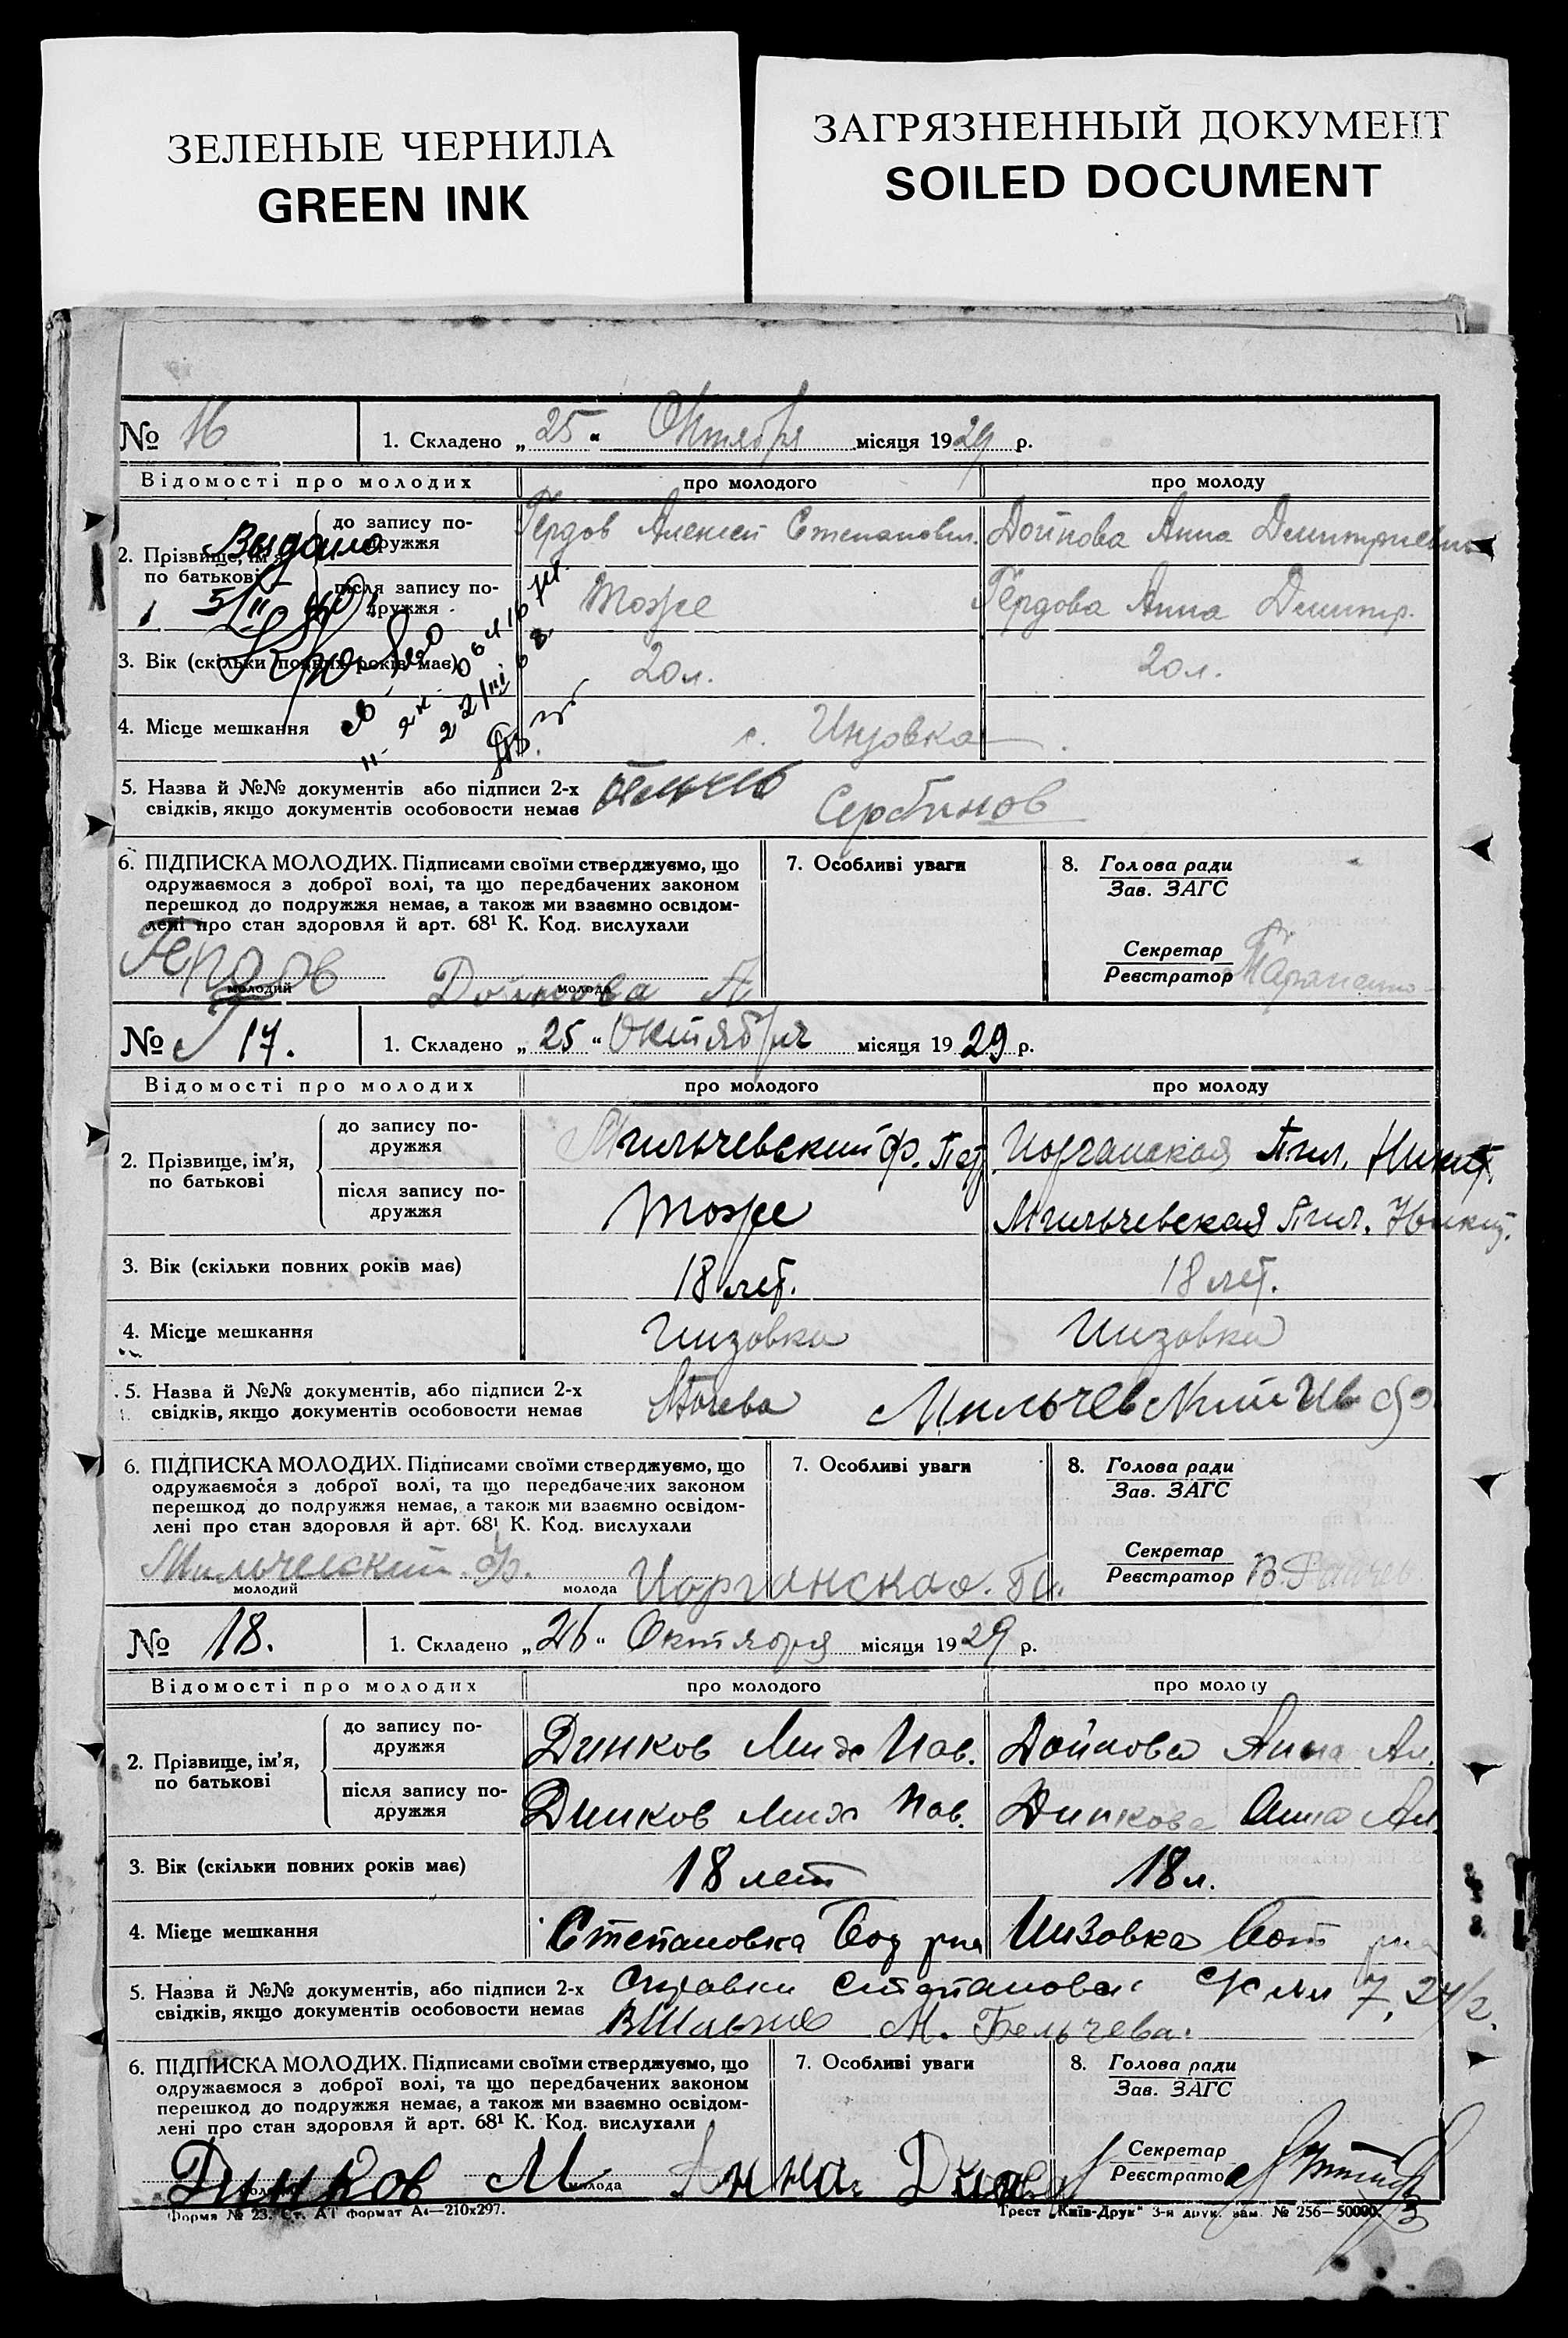 ЗЕЛЕНЫЕ ЧЕРНИЛА
GREEN INK
ЗАГРЯЗНЕННЫЙ ДОКУМЕНТ
SOILED DOCUMENT
№ 16 1. Складено „ 25 “ Октября місяця 1929 р.
Відомості про молодих про молодого про молоду
2. Прізвище, ім'я, по батькові
до запису подружжя Гердов Алексей Степанович. Дойнова Анна Дмитриевна
після запису подружжя Тоже Гердова Анна Дмитр.
Видано
5/II 40
22/III 68
3. Вік (скільки повних років має) 20 л. 20 л.
4. Місце мешкання с. Инзовка
5. Назва й №№ документів або підписи 2-х
свідків, якщо документів особовости немає Сербинов
6. ПІДПИСКА МОЛОДИХ. Підписами своїми стверджуємо, що
одружаємося з доброї волі, та що передбачених законом
перешкод до подружжя немає, а також ми взаємно освідом-
лені про стан здоровля й арт. 68¹ К. Код. вислухали
7. Особливі уваги
8. Голова ради
Зав. ЗАГС
Секретар
Реєстратор
Гердов Дойнова А
молодий молода
№ 17. 1. Складено „ 25 “ Октября місяця 1929 р.
Відомості про молодих про молодого про молоду
2. Прізвище, ім'я,
по батькові
до запису по-
дружжя Мильчевский Ф. Пет. Иорганская Пил. Никит.
після запису по-
дружжя Тоже Мильчевская Пил. Никит.
3. Вік (скільки повних років має) 18 лет. 18 лет.
4. Місце мешкання Инзовка Инзовка
5. Назва й №№ документів, або підписи 2-х
свідків, якщо документів особовости немає Мильчевский Ив
6. ПІДПИСКА МОЛОДИХ. Підписами своїми стверджуємо, що
одружаємося з доброї волі, та що передбачених законом
перешкод до подружжя немає, а також ми взаємно освідом-
лені про стан здоровля й арт. 68¹ К. Код. вислухали
7. Особливі уваги
8. Голова ради
Зав. ЗАГС
Секретар
Реєстратор
Мильчевский Ф. Иорганская. Пи.
молодий молода
№ 18. 1. Складено „ 26 “ Октября місяця 1929 р.
Відомості про молодих про молодого про молоду
2. Прізвище, ім'я,
по батькові
до запису по-
дружжя Динков Мих Пав. Дойнова Анна Ал.
після запису по-
дружжя Динков Мих Пав. Динкова Анна Ал.
3. Вік (скільки повних років має) 18 лет 18 л.
4. Місце мешкання Степановка Инзовка
5. Назва й №№ документів, або підписи 2-х
свідків, якщо документів особовости немає Справки
М. Бельчева.
6. ПІДПИСКА МОЛОДИХ. Підписами своїми стверджуємо, що
одружаємося з доброї волі, та що передбачених законом
перешкод до подружжя немає, а також ми взаємно освідом-
лені про стан здоровля й арт. 68¹ К. Код. вислухали
7. Особливі уваги
8. Голова ради
Зав. ЗАГС
Секретар
Реєстратор
Динков М Анна
молода
Форма № 23. Ст. А1 формат А4—210х297.
Трест „Київ-Друк“ 3-я друк. зам. № 256—50000.